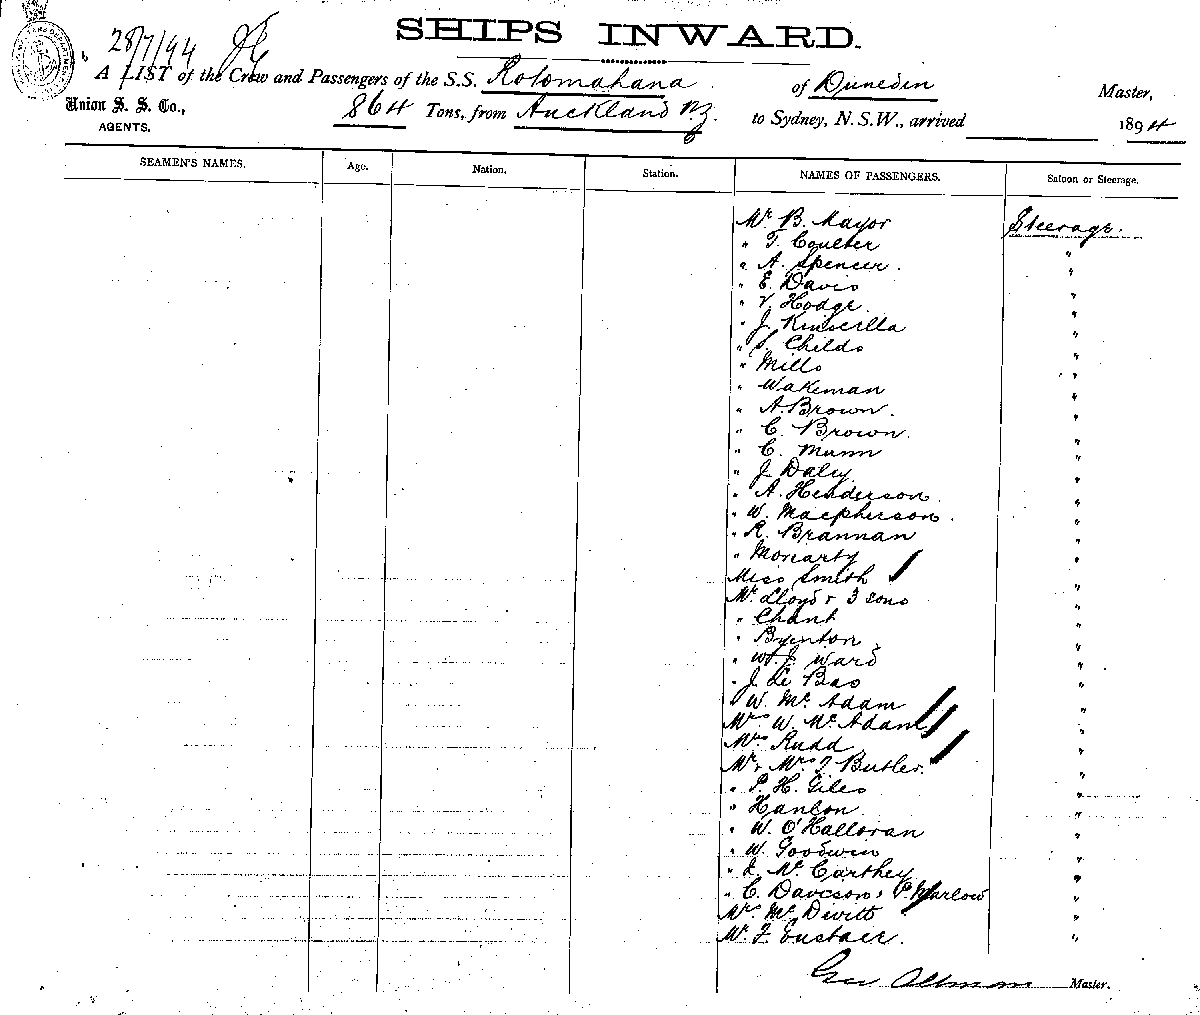 SHIPS INWARD.
28/7/94
A LIST of the Crew and Passengers of the S.S. Rotomahana of Dunedin Master,
Union S. S. Co., 864 Tons, from Auckland N.Z. to Sydney, N.S.W., arrived 1894
AGENTS.
SEAMEN'S NAMES. Age. Nation. Station. NAMES OF PASSENGERS. Saloon or Steerage.
Mr B. Mayor Steerage.
" T. Coulter "
" A. Spencer. "
" E. Davis "
" V. Hodge "
" J. Kinscilla "
" S. Childs "
" Mills "
" Wakeman "
" A. Brown. "
" C. Brown. "
" C. Munn "
" J. Daley "
" A. Henderson. "
" W. Macpherson. "
" R. Brannan "
" Moriarty "
Miss Smith "
Mr Lloyd & 3 sons "
" Chant "
" Bynton "
" W. J. Ward "
" J. Le Bas "
" W. McAdam "
Mrs W. McAdam "
Mrs Rudd "
Mr & Mrs J Butler. "
" P. H. Giles "
" Hanlon "
" W. O'Halloran "
" W. Goodwin "
" J. McCarthey "
" C. Davcson & P. Marlow "
Mrs McDevitt "
Mr F. Eustace. "
Geo Allman Master.